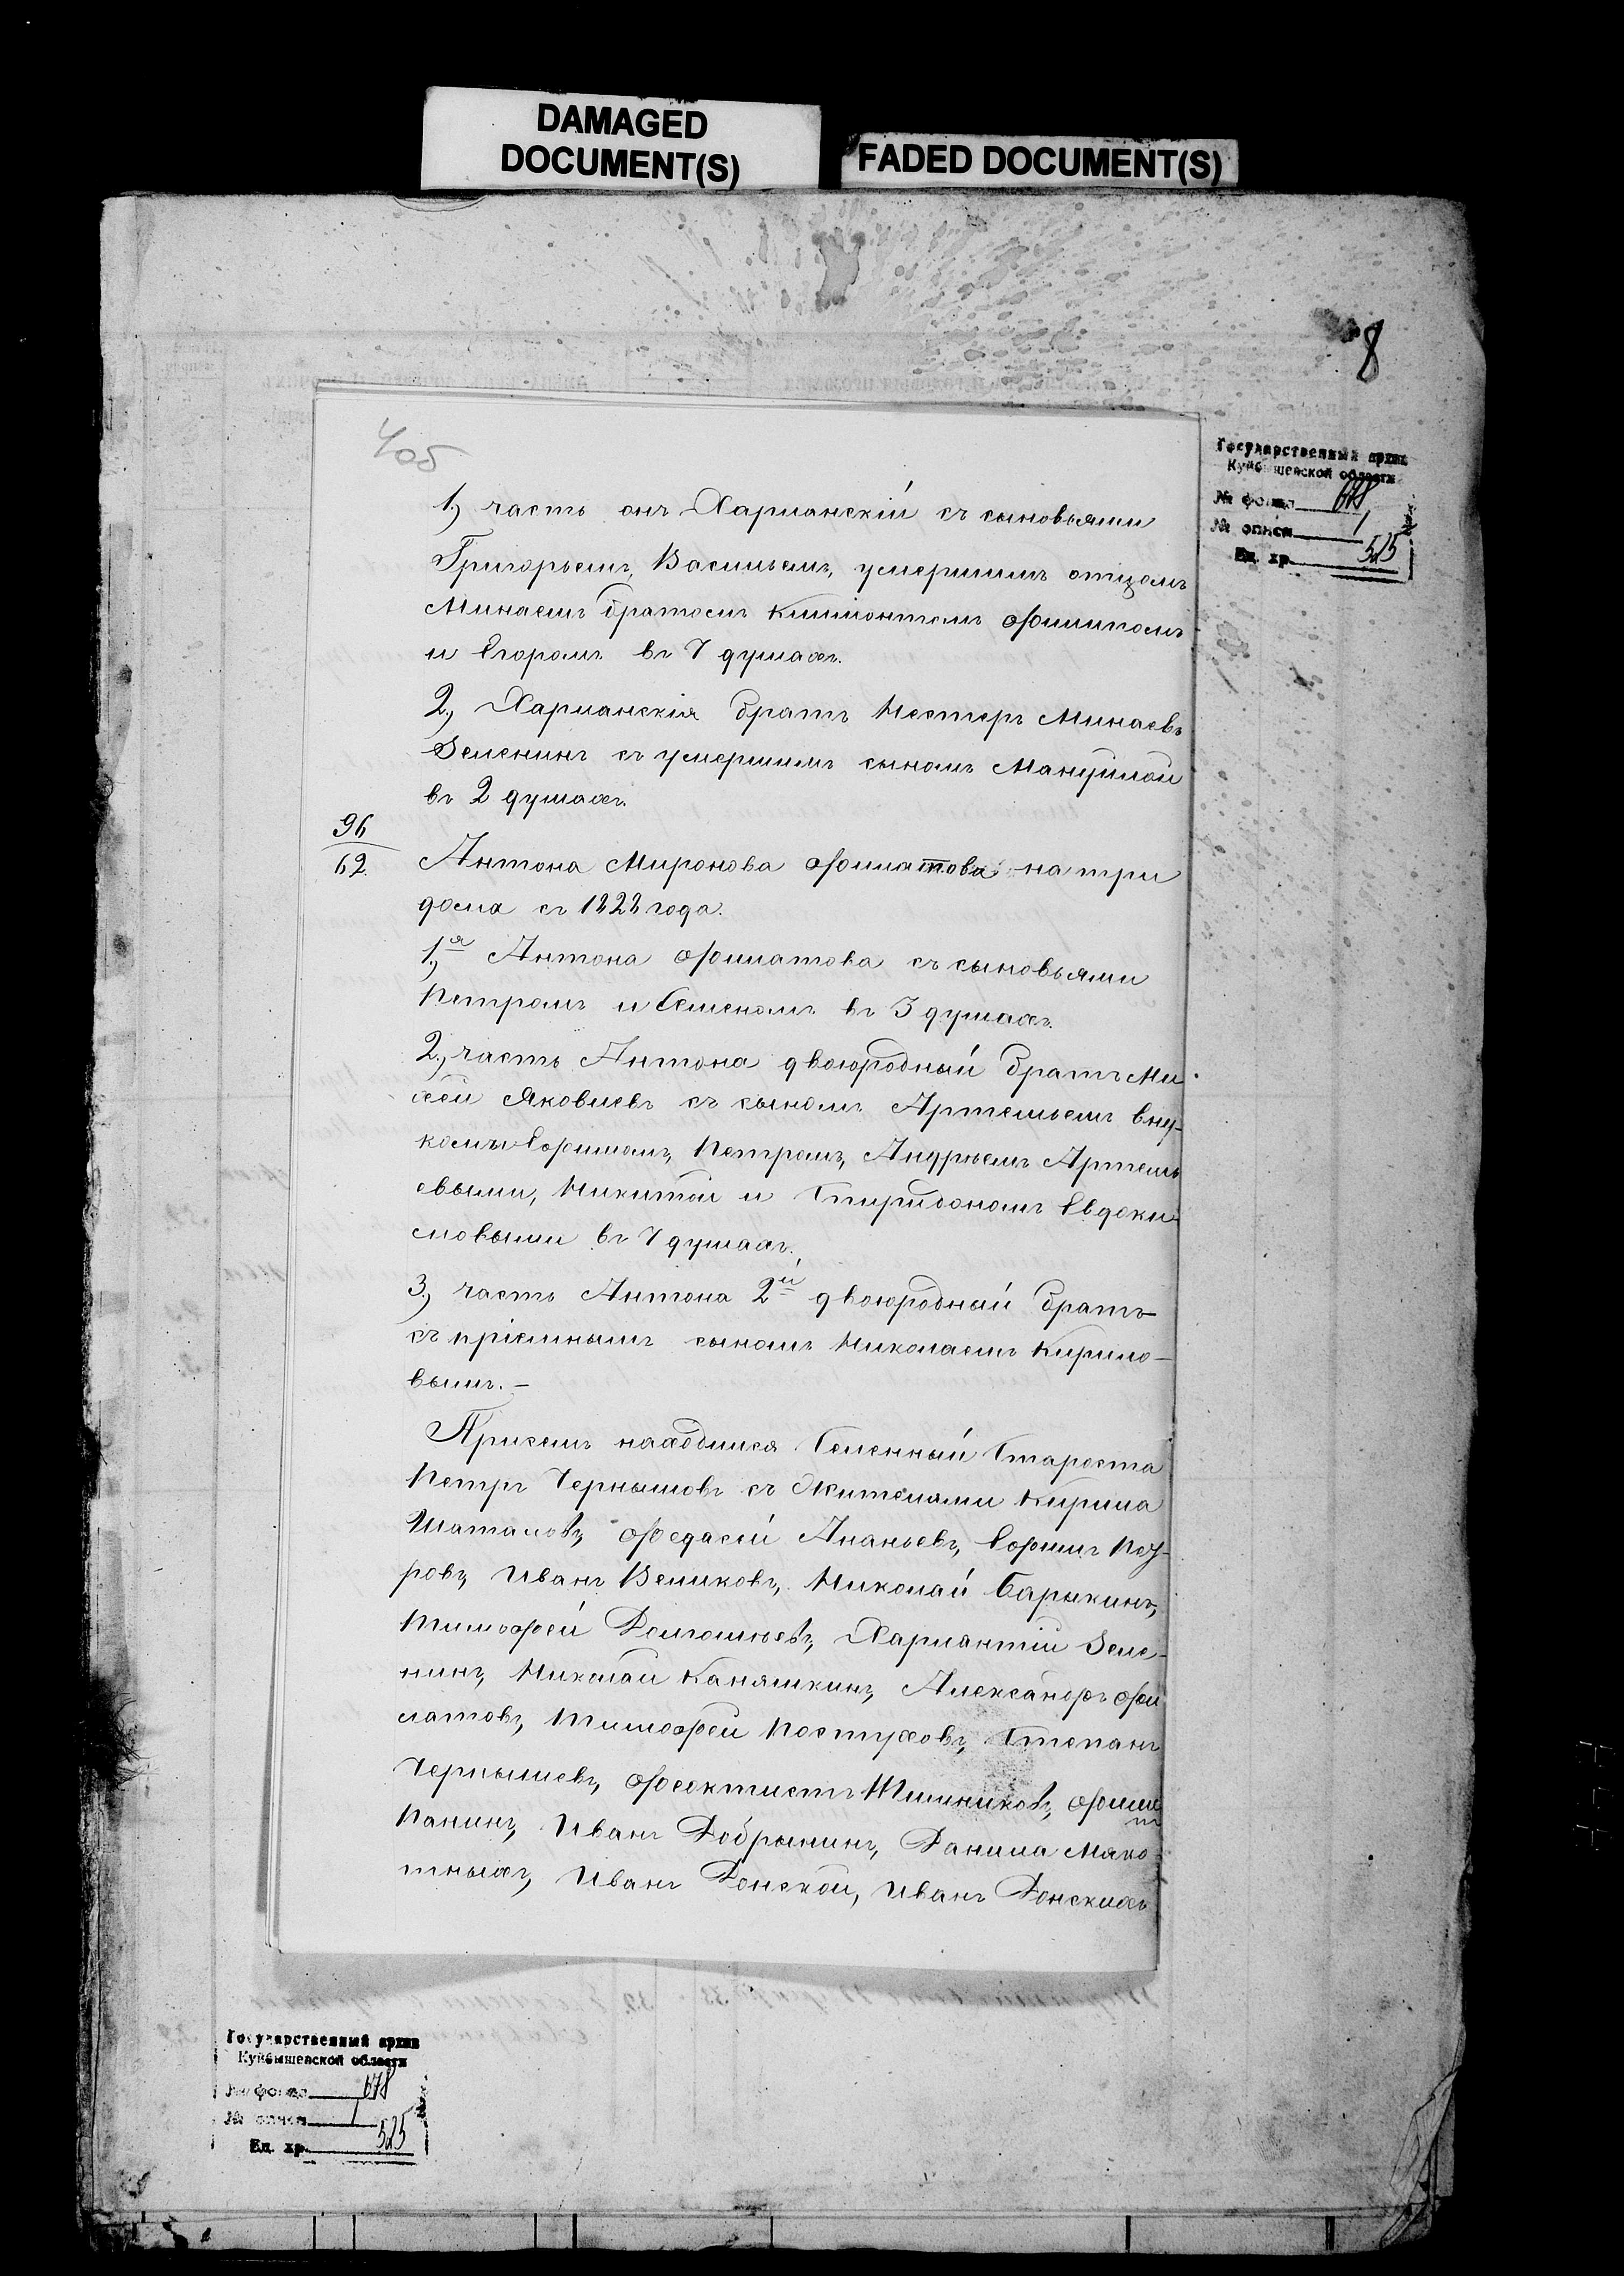 DAMAGED
DOCUMENT(S)
FADED DOCUMENT(S)
8
Государственный архив
Куйбышевской области
№ фонда 678
№ описи 1
Ед. хр. 525
1,) часть онъ Харланскій съ сыновьями
Григорьемъ, Васильемъ, умершимъ отцомъ
Минаемъ братомъ Климонтомъ Филипомъ
и Егоромъ въ 7 душахъ.
2,) Харланскія братъ Нестеръ Минаевъ
Зеленинъ съ умершимъ сыномъ Мануйлой
въ 2 душахъ.
96
62.
Антона Миронова Филатова на три
дома съ 1828 года.
1,)я Антона Филатова съ сыновьями
Петромъ и Семеномъ въ 3 душахъ.
2,) часть Антона двоюродный братъ Ми-
хей Яковлевъ съ сыномъ Артемьемъ вну-
комъ Ефимомъ, Петромъ, Андреемъ Артемь
евыми, Никитой и Спиридономъ Евдоки-
мовыми въ 7 душахъ.
3,) часть Антона 2й двоюродный братъ
съ пріемнымъ сыномъ Николаемъ Кирило-
вымъ. —
При семъ находился Сельскный Староста
Петръ Чернышовъ съ Жителями Кирила
Шаталовъ, Федасій Ананьевъ, Ефимъ Пет-
ровъ, Иванъ Великовъ, Николай Барыкинъ,
Тимофей Долгошеевъ, Харлантій Зеле-
нинъ, Николай Каняшкинъ, Александръ Фи
латовъ, Тимофей Пастуховъ, Степанъ
Чернышевъ, Феоктистъ Шишниковъ, Филип
Панинъ, Иванъ Добрынинъ, Данила Мяко-
тныхъ, Иванъ Донской, Иванъ Донскихъ
Государственный архив
Куйбышевской области
№ фонда 678
№ описи 1
Ед. хр. 525